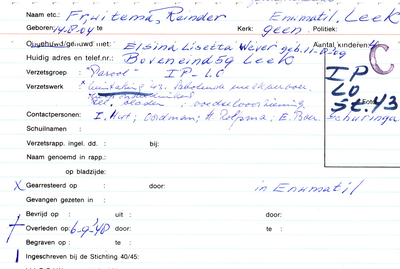 Naam etc.: Fruitema, Reinder Enumatil, Leek
Geboren 14-8-04 te Kerk: geen Politiek:
Gehuwd met: Elsina Lisetta Wever geb. 11-8-09 Aantal kinderen: 4
Huidig adres en telef.nr.: Boveneind 59 Leek
Verzetsgroep : "Parool" IP-LO
Verzetswerk
ill. bladen : voedselvoorziening
IP
LO
St. 43
C
Contactpersonen: I. Hut; Oordman; H. Rolfsma; E. Boer
Schuilnaam :
Verzetsrapp. ingel. dd. : bij:
Naam genoemd in rapp.:
op bladzijde:
X Gearresteerd op : door: in Enumatil
Gevangen gezeten in :
Bevrijd op : uit : door:
Overleden op: 6-9-'48 door: te :
Begraven op : te :
Ingeschreven bij de Stichting 40/45: